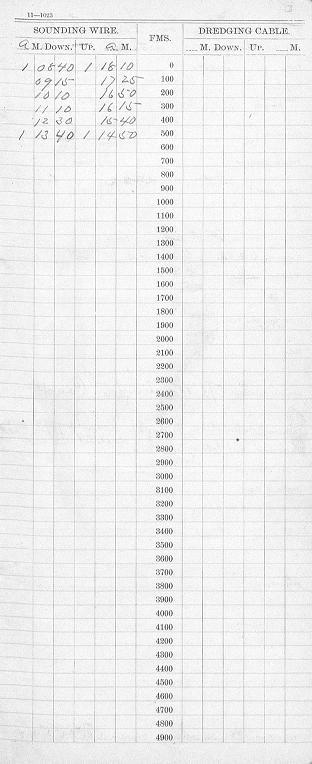 11—1023
SOUNDING WIRE. FMS. DREDGING CABLE.
a M. DOWN. UP. a M. M. DOWN. UP. M.
1 08 40 1 18 10 0
09 15 17 25 100
10 10 16 50 200
11 10 16 15 300
12 30 15 40 400
1 13 40 1 14 50 500
600
700
800
900
1000
1100
1200
1300
1400
1500
1600
1700
1800
1900
2000
2100
2200
2300
2400
2500
2600
2700
2800
2900
3000
3100
3200
3300
3400
3500
3600
3700
3800
3900
4000
4100
4200
4300
4400
4500
4600
4700
4800
4900